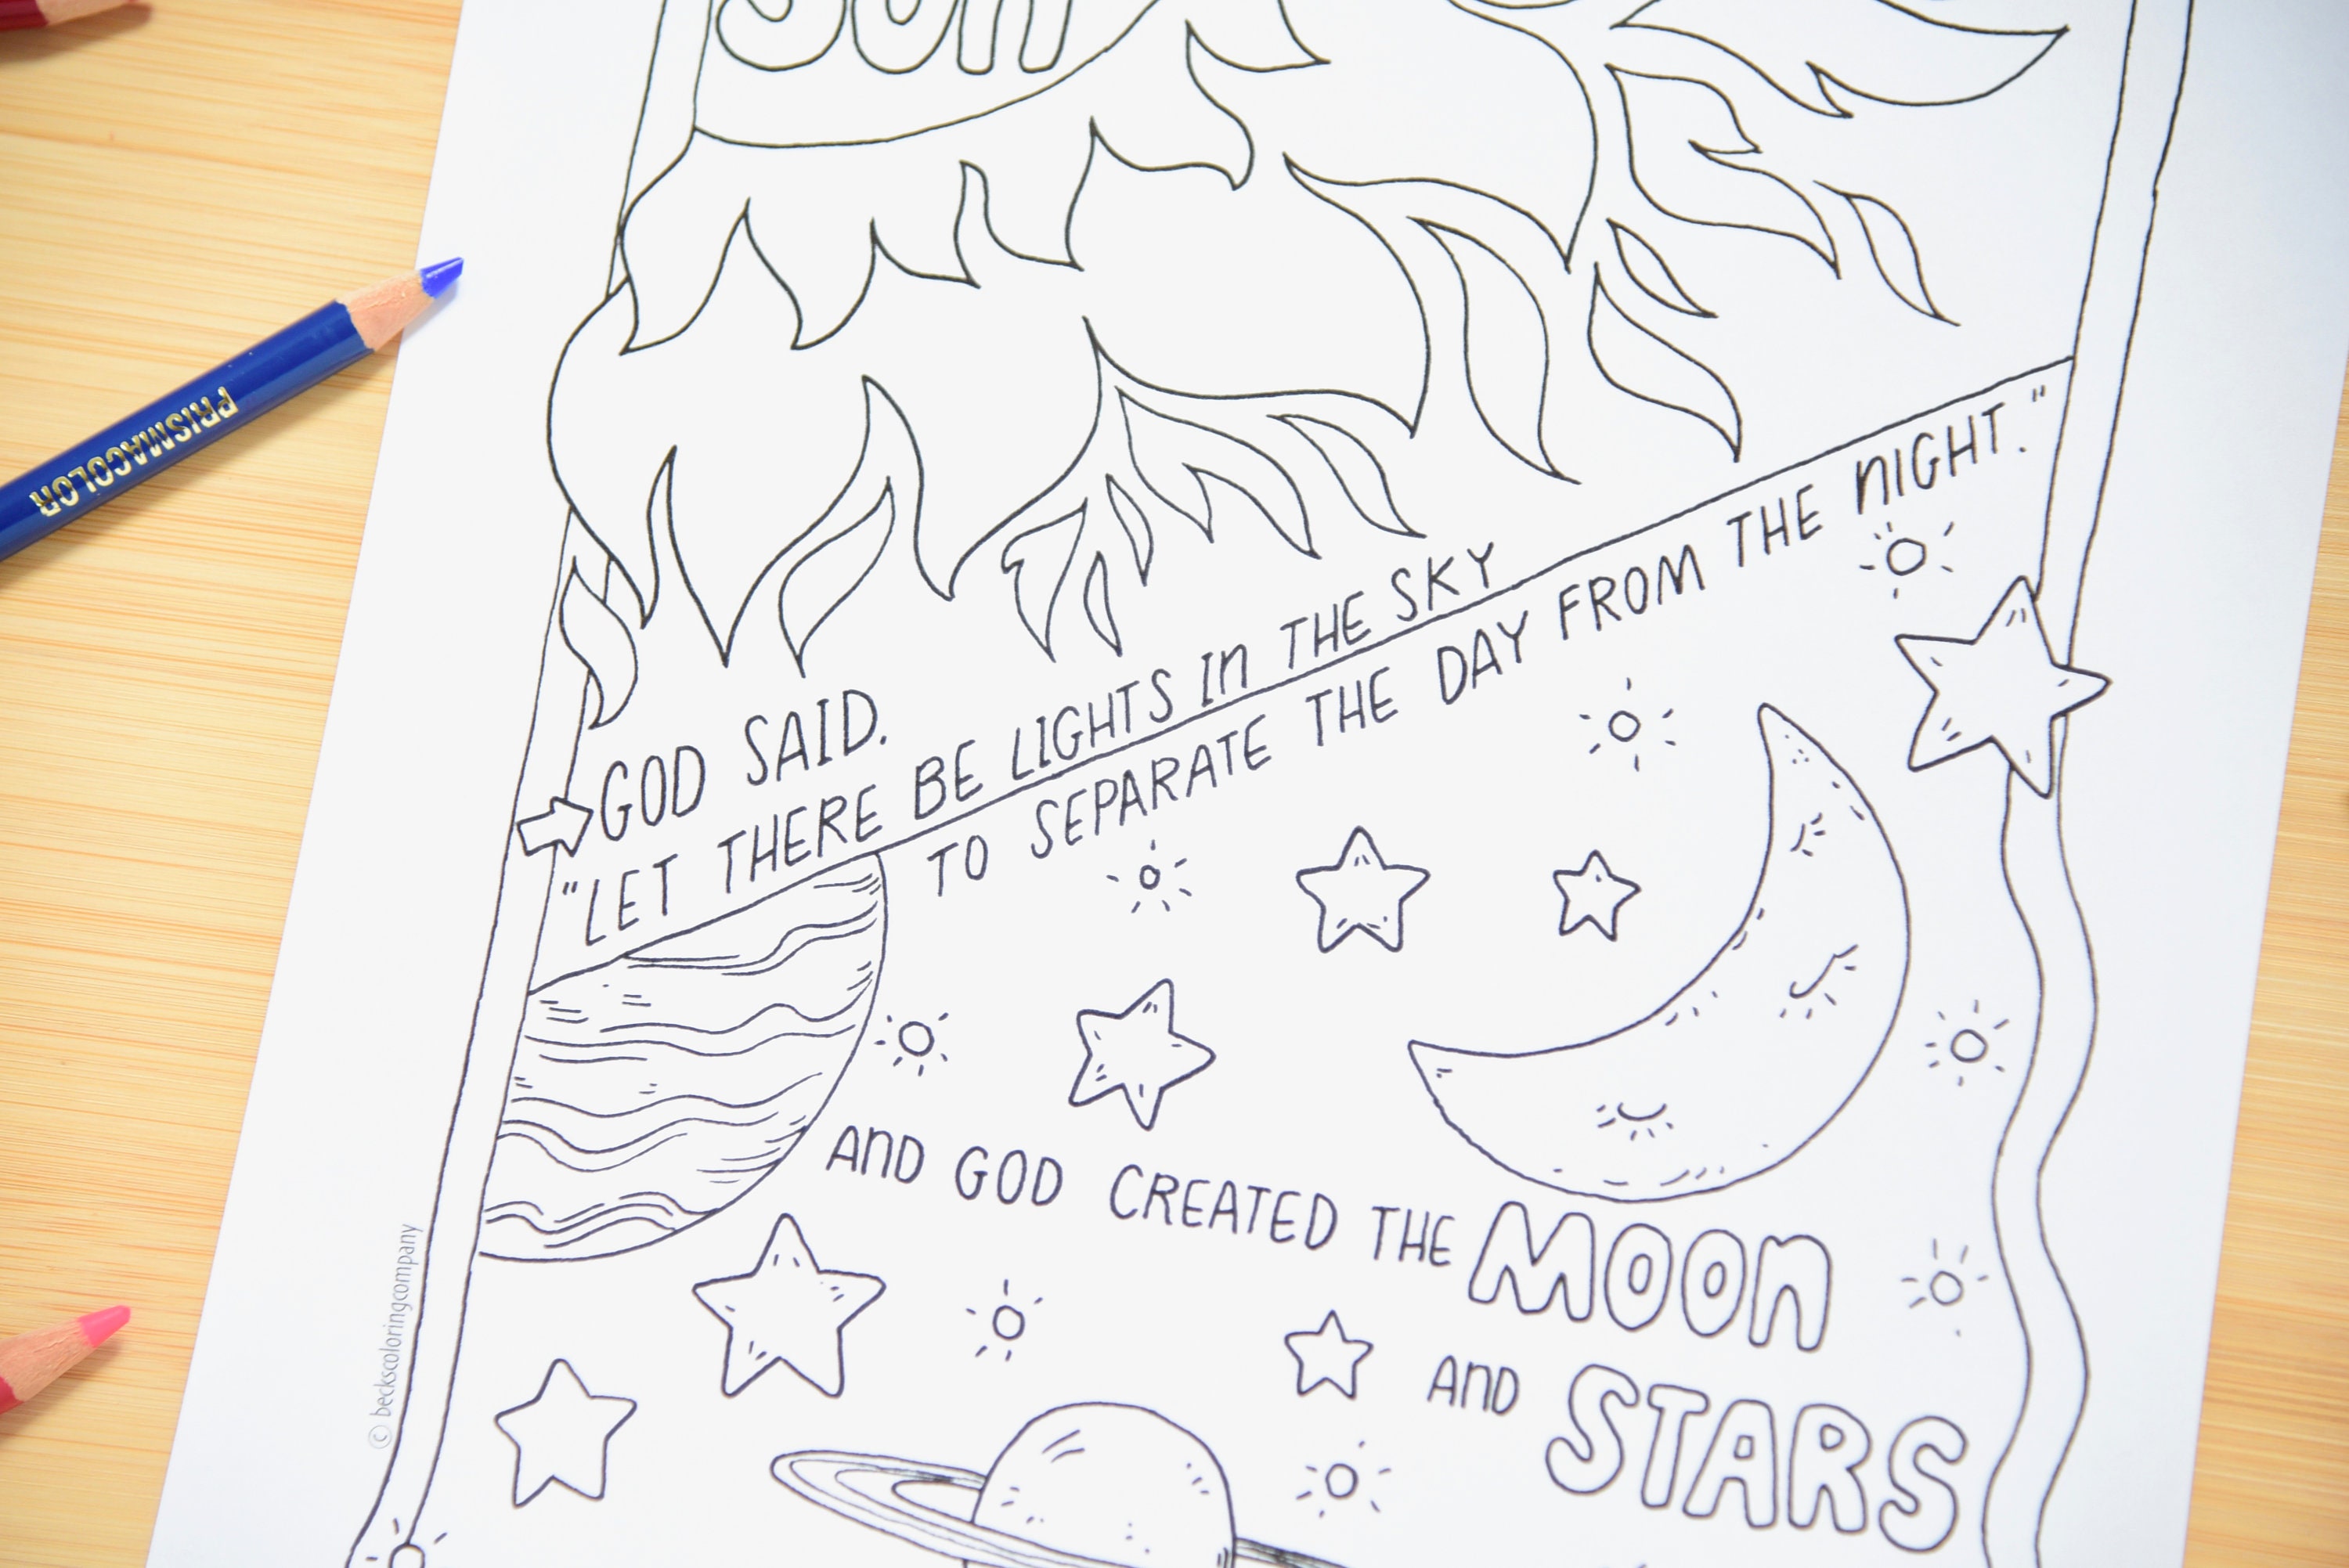 SUN
GOD SAID,
"LET THERE BE LIGHTS IN THE SKY
TO SEPARATE THE DAY FROM THE NIGHT."
AND GOD CREATED THE MOON
AND STARS
© beckscoloringcompany
PRISMACOLOR